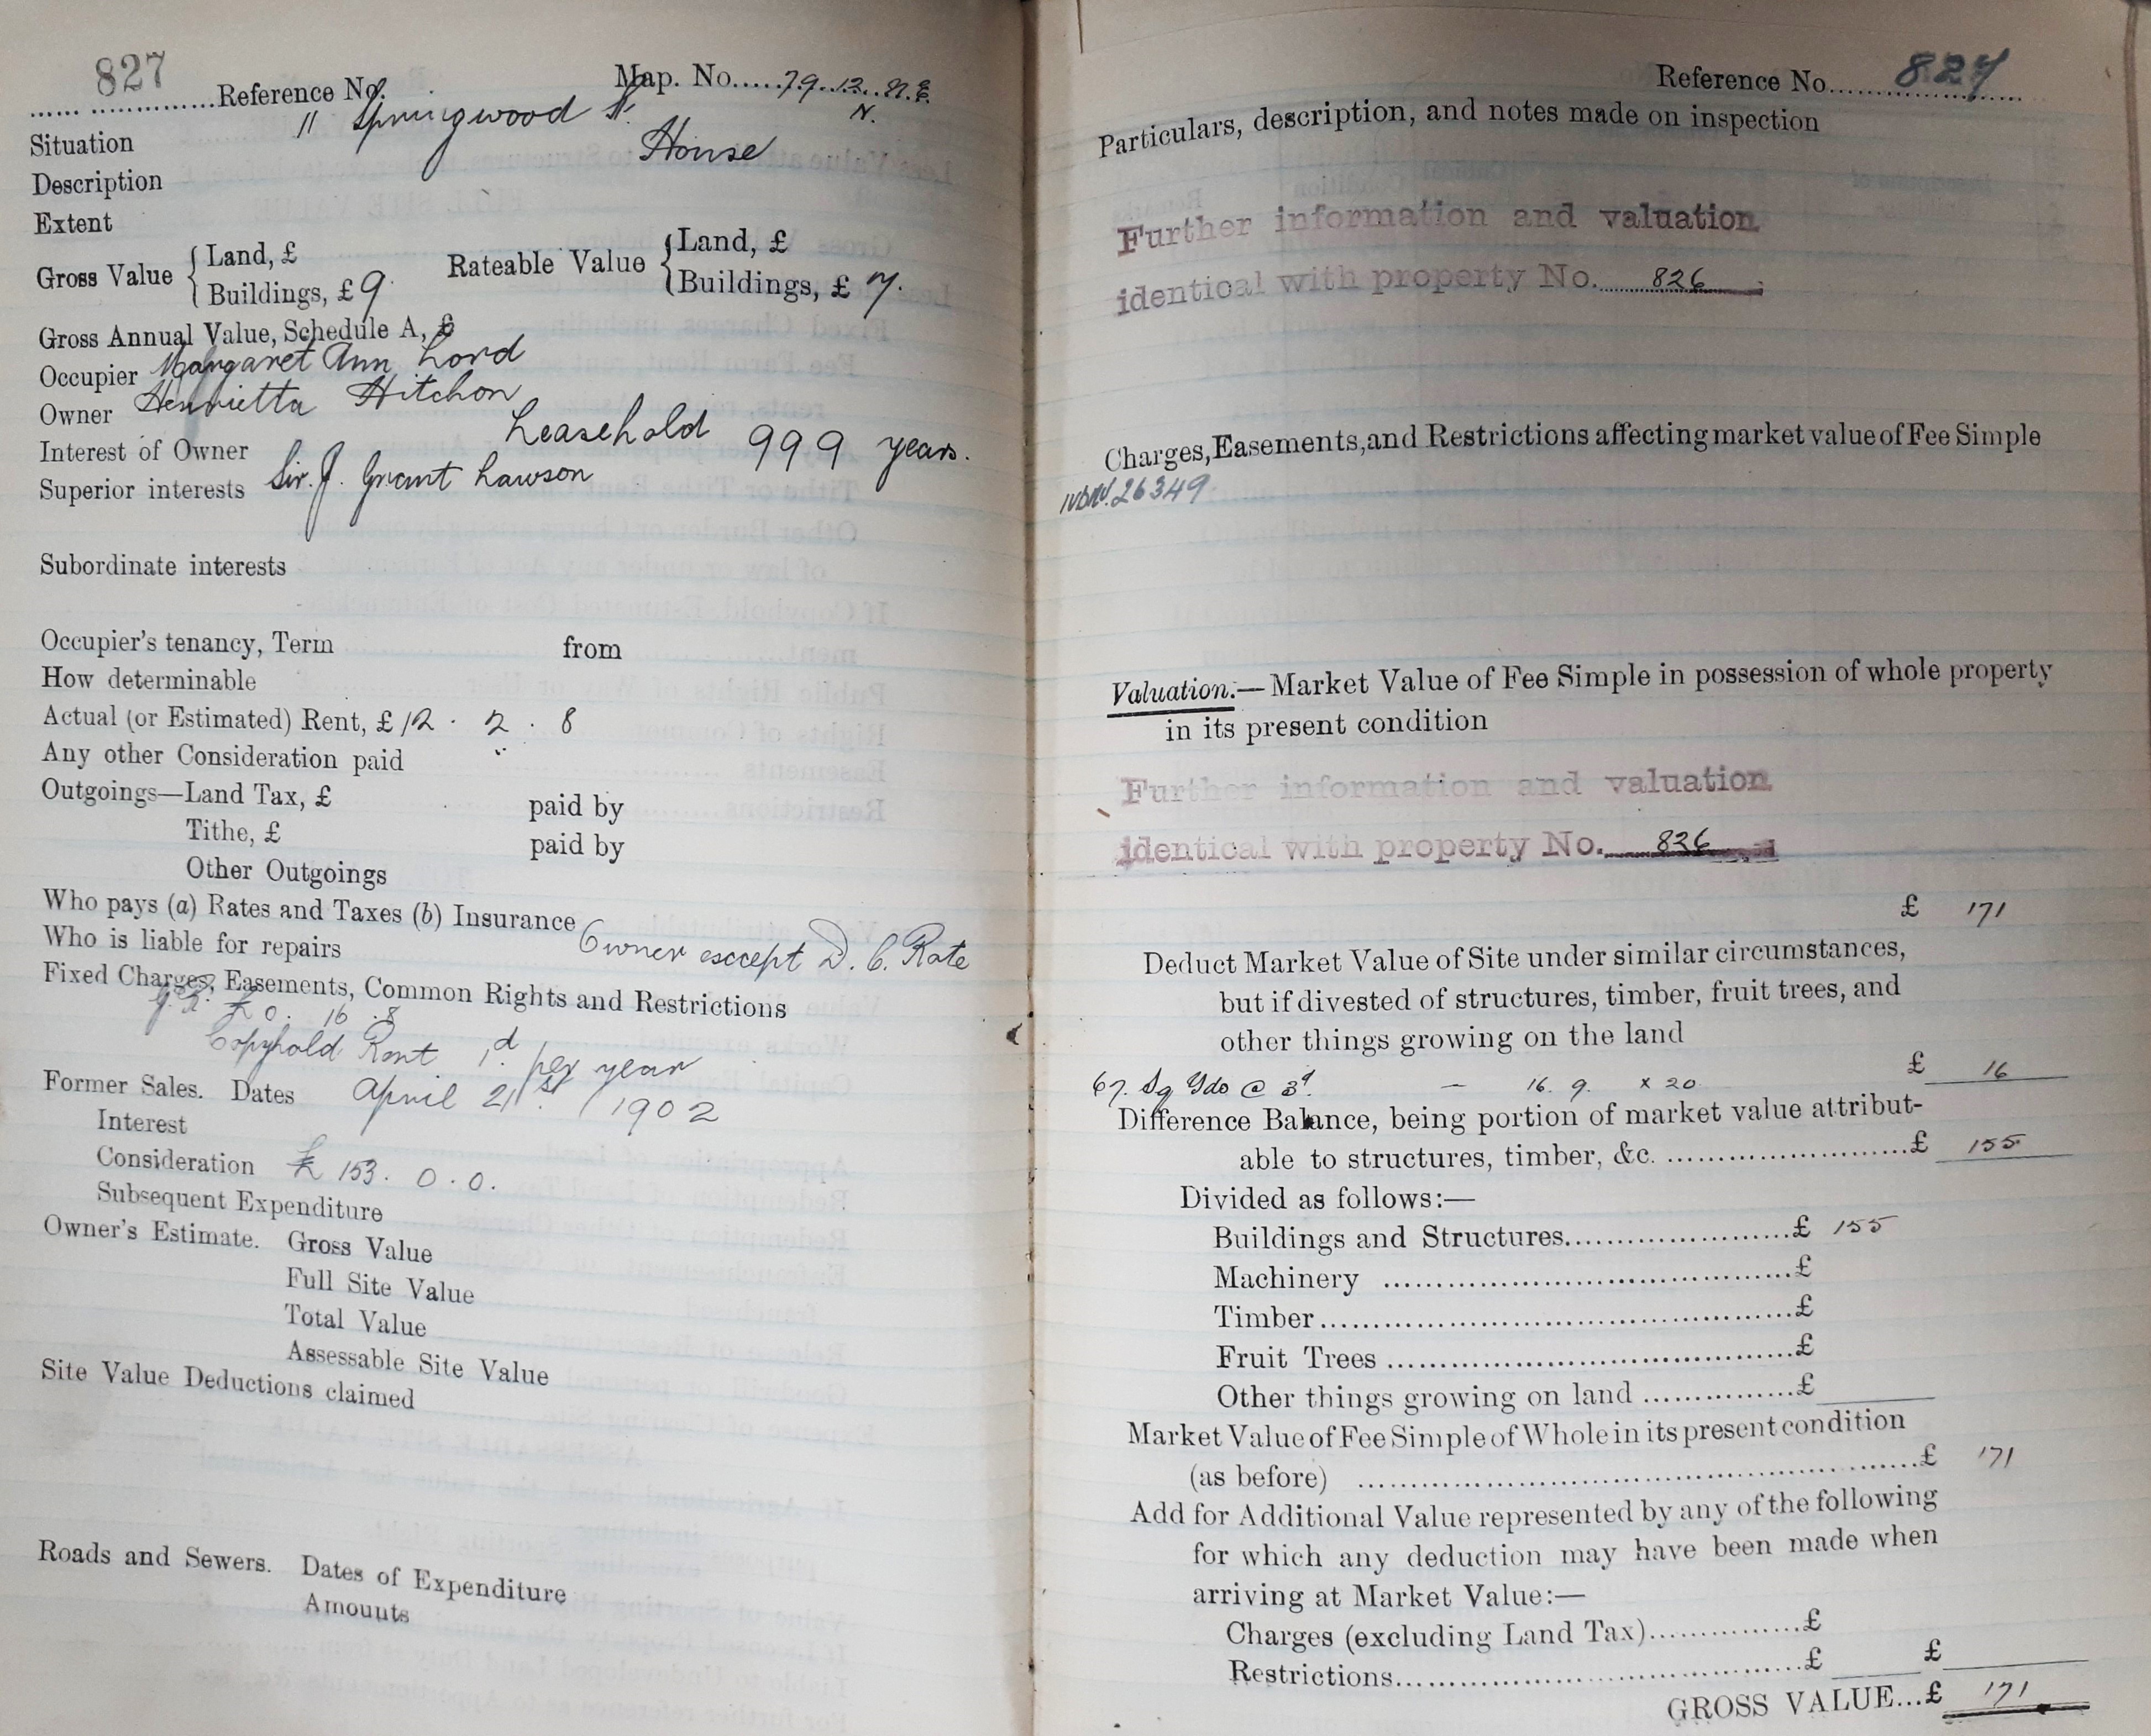 827
Reference No. Map. No. 79.13.N.E.
N.
Situation 11 Springwood St.
Description House
Extent
Gross Value { Land, £ Rateable Value { Land, £
Buildings, £ 9. Buildings, £ 7.
Gross Annual Value, Schedule A, £
Occupier Margaret Ann Lord
Owner Henrietta Hitchon
Interest of Owner Leasehold 999 years.
Superior interests Sir. J. Grant Lawson
Subordinate interests
Occupier's tenancy, Term from
How determinable
Actual (or Estimated) Rent, £ 12 . 2 . 8
Any other Consideration paid
Outgoings—Land Tax, £ paid by
Tithe, £ paid by
Other Outgoings
Who pays (a) Rates and Taxes (b) Insurance
Who is liable for repairs Owner except D. C. Rate
Fixed Charges, Easements, Common Rights and Restrictions
G.R. £0. 16 .8
Copyhold Rent 1d per year
Former Sales. Dates April 21st. 1902
Interest
Consideration £ 153. 0 . 0.
Subsequent Expenditure
Owner's Estimate. Gross Value
Full Site Value
Total Value
Assessable Site Value
Site Value Deductions claimed
Roads and Sewers. Dates of Expenditure
Amounts
Reference No. 827
Particulars, description, and notes made on inspection
Further information and valuation
identical with property No. 826
Charges, Easements, and Restrictions affecting market value of Fee Simple
26349.
Valuation.—Market Value of Fee Simple in possession of whole property
in its present condition
Further information and valuation
identical with property No. 826
£ 171
Deduct Market Value of Site under similar circumstances,
but if divested of structures, timber, fruit trees, and
other things growing on the land
67. Sq Yds @ 3d. — 16. 9. x 20. £ 16
Difference Balance, being portion of market value attribut-
able to structures, timber, &c. £ 155
Divided as follows:—
Buildings and Structures £ 155
Machinery £
Timber £
Fruit Trees £
Other things growing on land £
Market Value of Fee Simple of Whole in its present condition
(as before) £ 171
Add for Additional Value represented by any of the following
for which any deduction may have been made when
arriving at Market Value:—
Charges (excluding Land Tax) £
Restrictions £ £
GROSS VALUE...£ 171